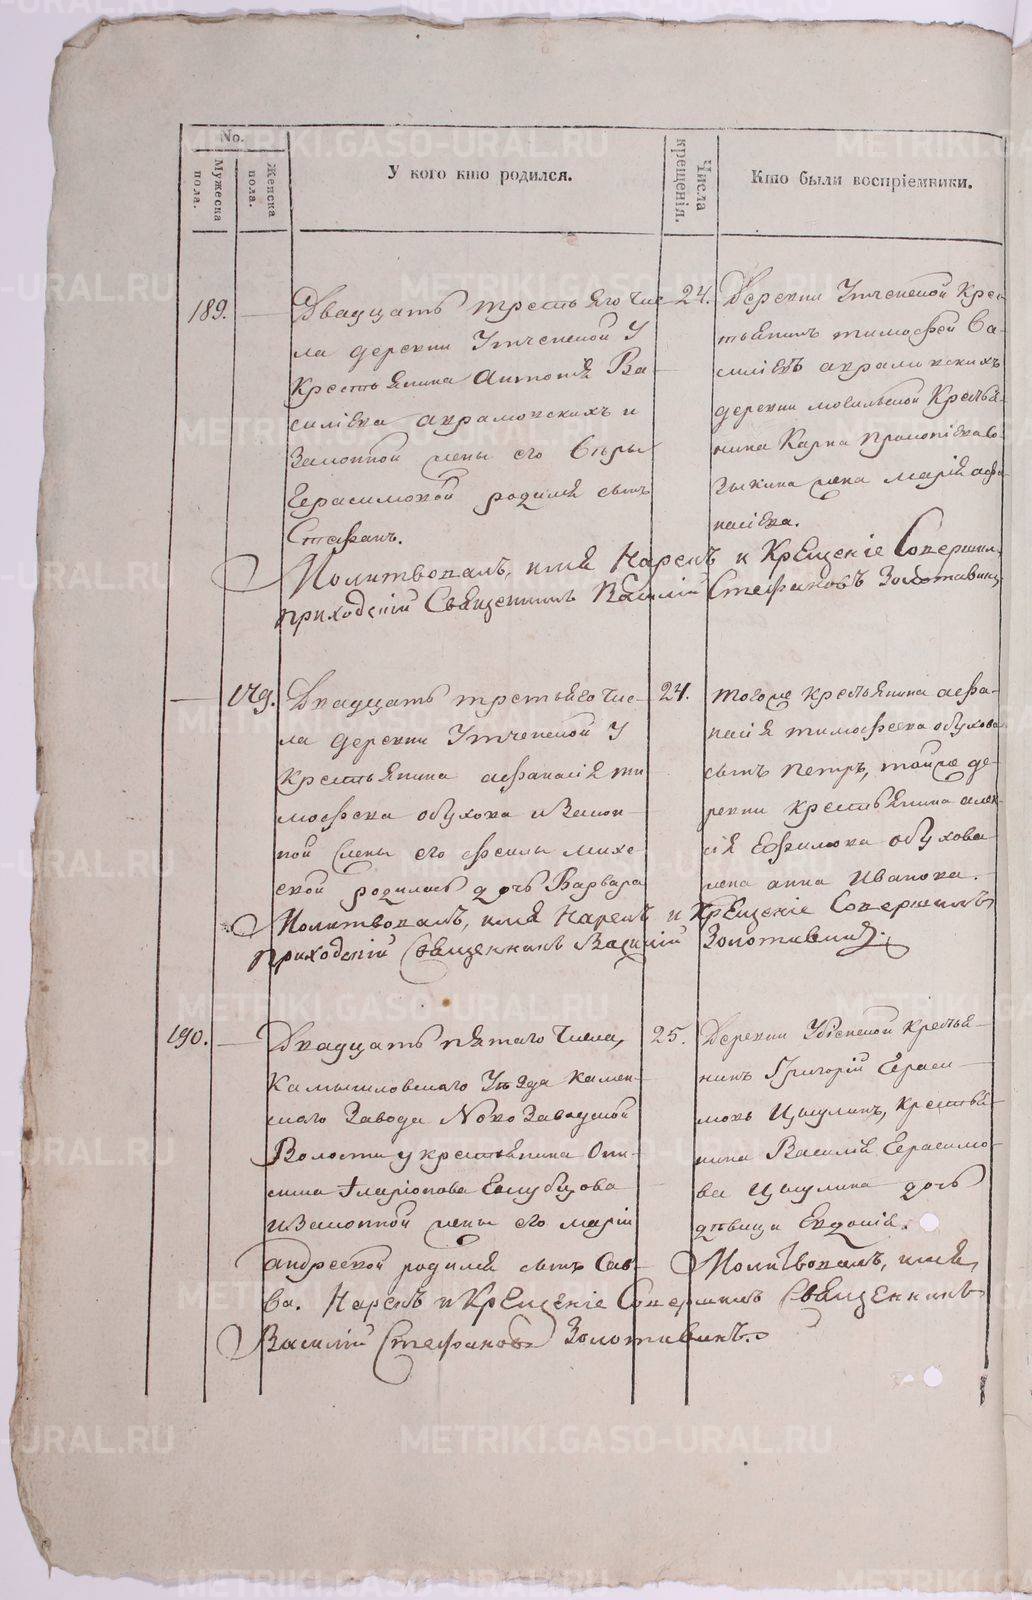 No.
Мужеска пола.
Женска пола.
У кого кто родился.
Числа крещенія.
Кто были воспріемники.
189.
Двадцать третьяго чис-
ла деревни У
Крестьянина Антонія Ва-
силіева и
Законной жены его Вѣры
Герасимовой родился сынъ
Стефанъ.
24.
Деревни Крес-
тьянинъ тимофей Ва-
силіевъ
деревни Крестья-
нина Карпа
жена Марія афа-
насіева.
Молитвовалъ, имя Нарекъ и Крещеніе Совершилъ
приходскій Священникъ Василій Стефановъ Золотавинъ
179.
Двадцать третьяго чис-
ла деревни У
Крестьянина афанасія ти-
мофеева обухова и Закон-
ной жены его михе-
евой родилась дочь Варвара
24.
тогоже крестьянина афа-
насія тимофеева обухова
сынъ петръ, тойже де-
ревни крестьянина алек-
сія Ефимова обухова
жена анна Иванова.
Молитвовалъ, имя Нарекъ и Крещеніе Совершилъ
приходскій Священникъ Василій Золотавинъ
190.
Двадцать пятаго числа,
Камышловскаго Уѣзда Камен-
скаго Завода Новозаводской
Волости у крестьянина Они-
сима Иларіонова Голубцова
и Законной жены его маріи
андреевой родился сынъ Сав-
ва. Нарекъ и Крещеніе Совершилъ Священникъ
Василій Стефановъ Золотавинъ.
25.
Деревни Крестья-
нинъ Григорій Гераси-
мовъ крестья-
нина Василія Герасимо-
ва дочь
дѣвица Евдокія.
Молитвовалъ, имя
METRIKI.GASO-URAL.RU